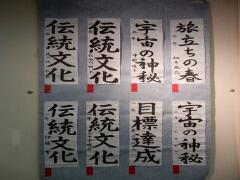 旅立ちの春
宇宙の神秘
伝統文化
伝統文化
宇宙の神秘
目標達成
伝統文化
伝統文化